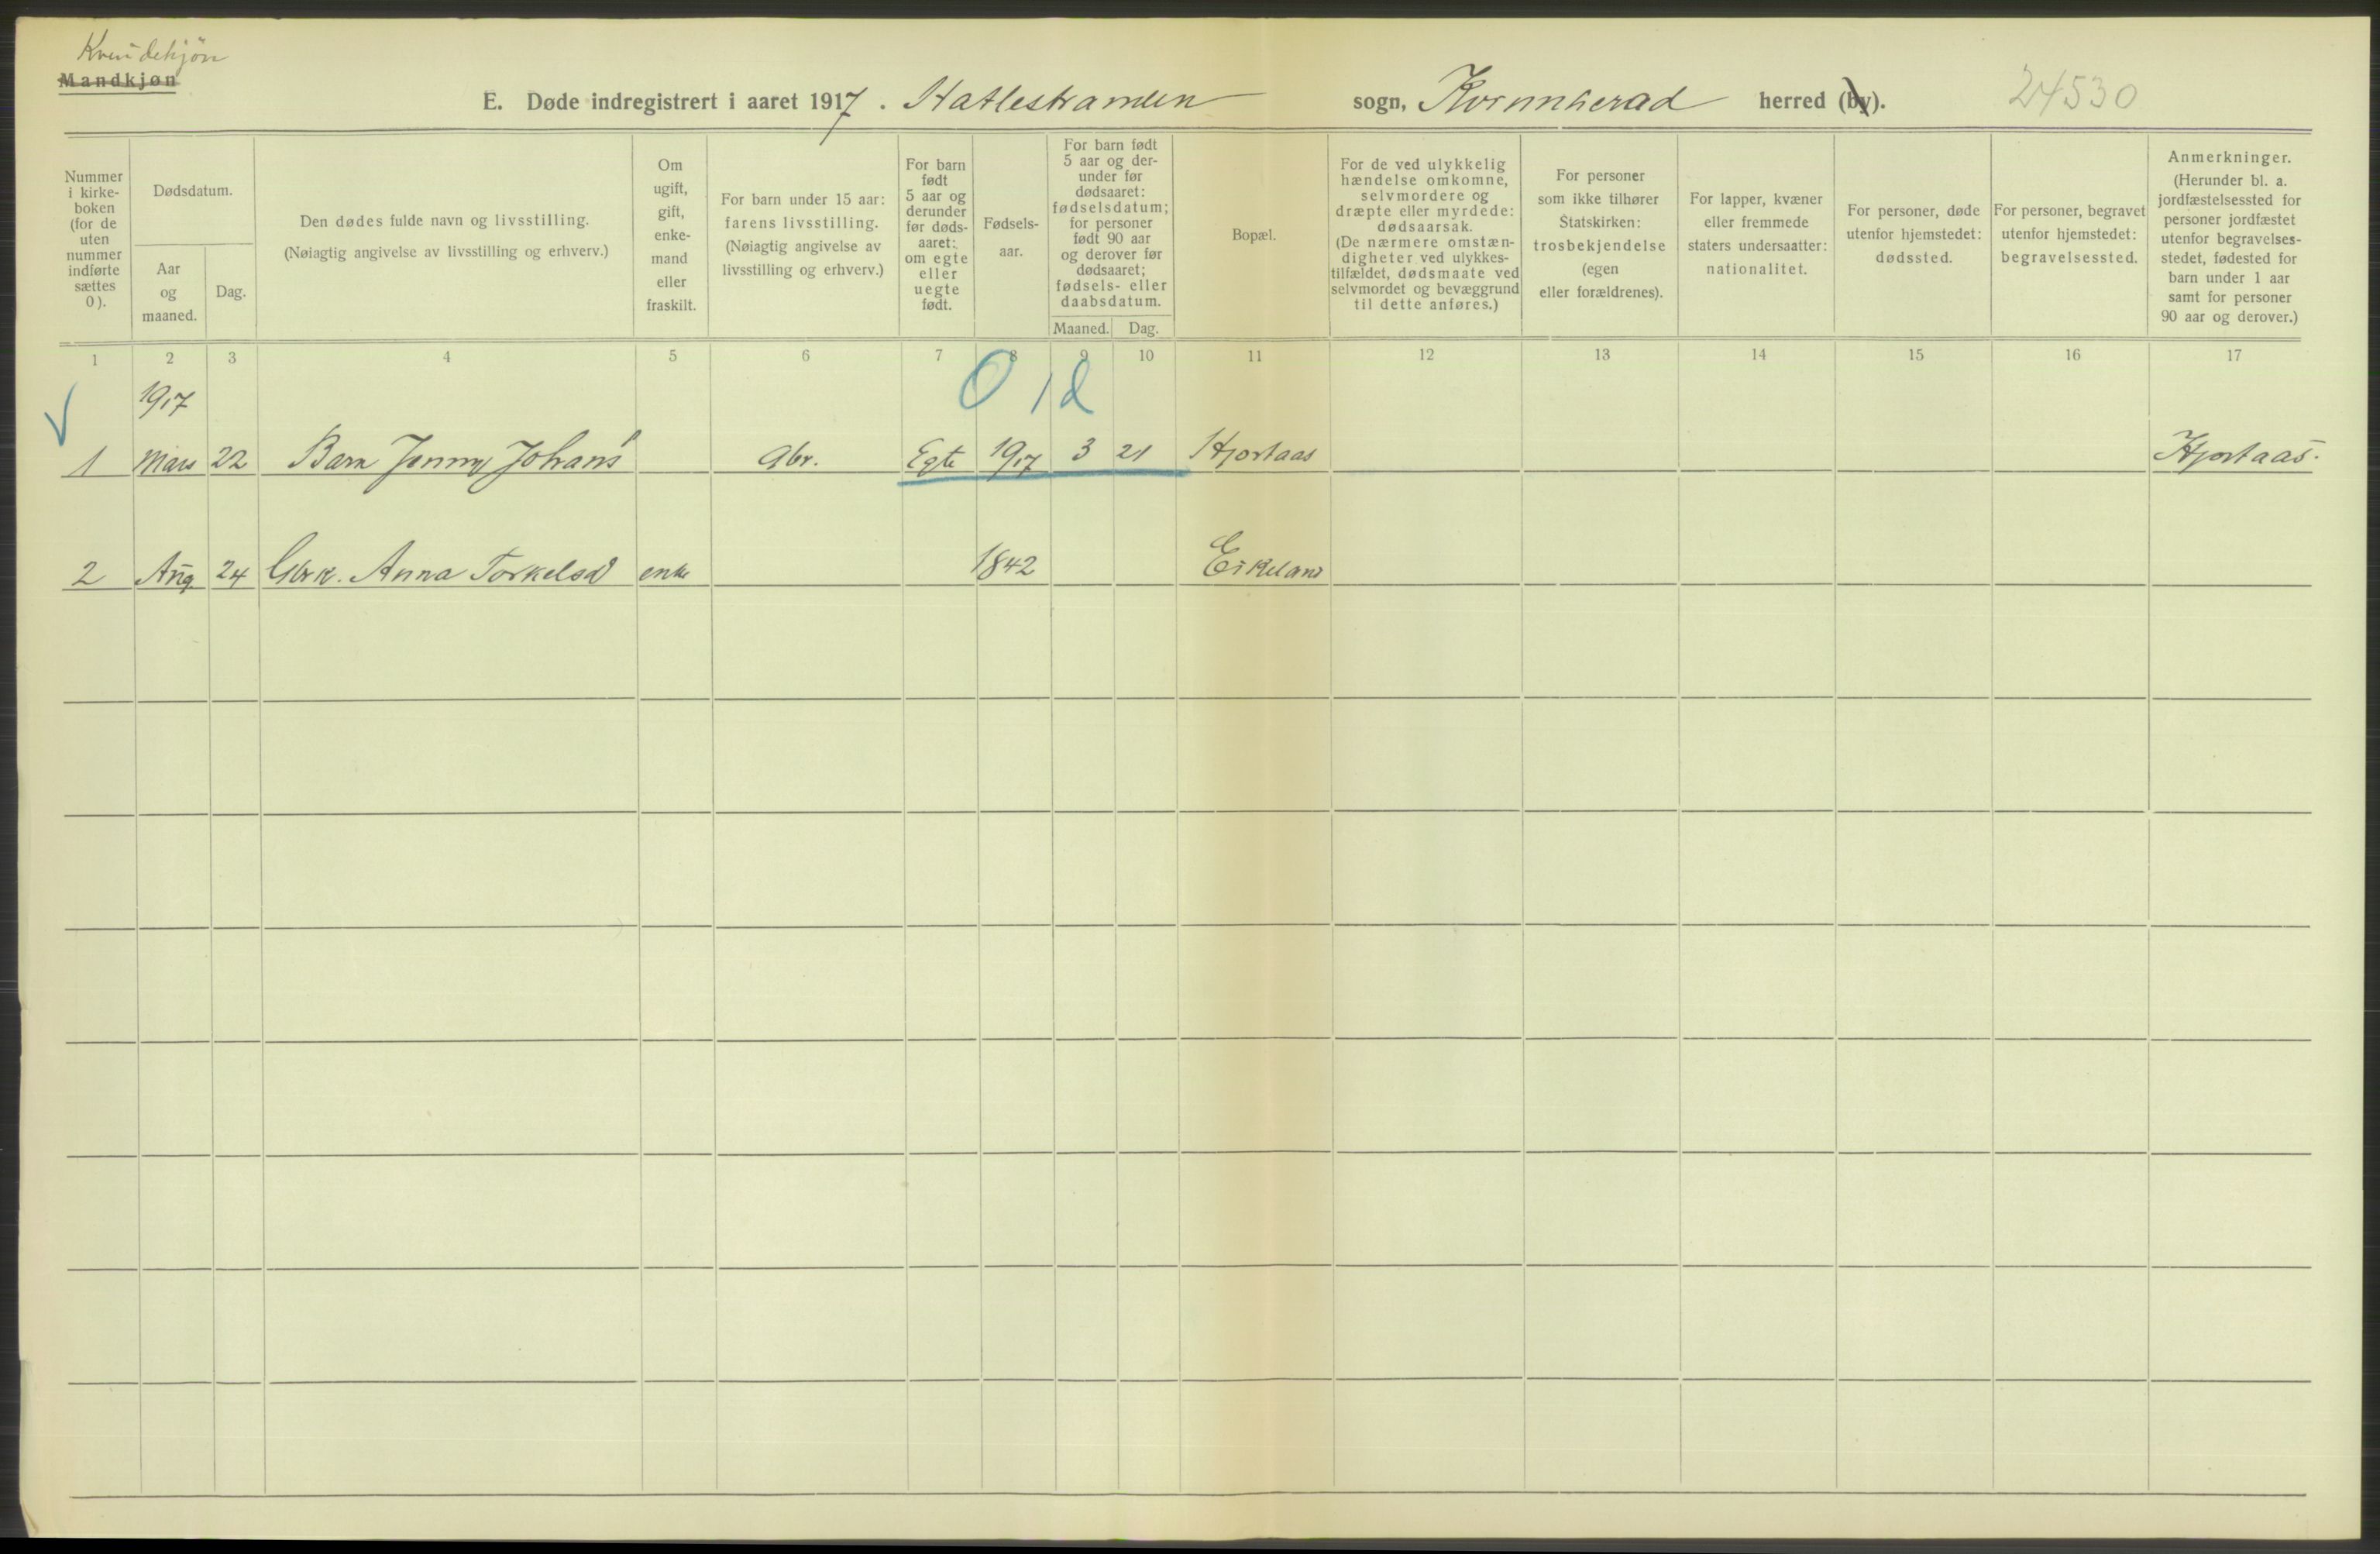 Kvindekjøn
Mandkjøn
E. Døde indregistrert i aaret 1917. Hatlestranden sogn, Kvinnherad herred (by). 24530
Nummer i kirke-boken (for de uten nummer indførte sættes 0).
Dødsdatum.
Aar og maaned.
Dag.
Den dødes fulde navn og livsstilling.
(Nøiagtig angivelse av livsstilling og erhverv.)
Om ugift, gift, enke-mand eller fraskilt.
For barn under 15 aar: farens livsstilling.
(Nøiagtig angivelse av livsstilling og erhverv.)
For barn født 5 aar og derunder før døds-aaret: om egte eller uegte født.
Fødsels-aar.
For barn født 5 aar og der-under før dødsaaret: fødselsdatum; for personer født 90 aar og derover før dødsaaret; fødsels- eller daabsdatum.
Maaned. Dag.
Bopæl.
For de ved ulykkelig hændelse omkomne, selvmordere og dræpte eller myrdede: dødsaarsak.
(De nærmere omstæn-digheter ved ulykkes-tilfældet, dødsmaate ved selvmordet og bevæggrund til dette anføres.)
For personer som ikke tilhører Statskirken: trosbekjendelse (egen eller forældrenes).
For lapper, kvæner eller fremmede staters undersaatter: nationalitet.
For personer, døde utenfor hjemstedet: dødssted.
For personer, begravet utenfor hjemstedet: begravelsessted.
Anmerkninger.
(Herunder bl. a. jordfæstelsessted for personer jordfæstet utenfor begravelses-stedet, fødested for barn under 1 aar samt for personer 90 aar og derover.)
1 2 3 4 5 6 7 8 9 10 11 12 13 14 15 16 17
1917 0 1 d
1 Mars 22 Barn Jenny Johans Gbr. Egte 1917 3 21 Hjortaas Hjortaas.
2 Aug 24 Gbrk. Anna Torkelsd enke 1842 Eikeland